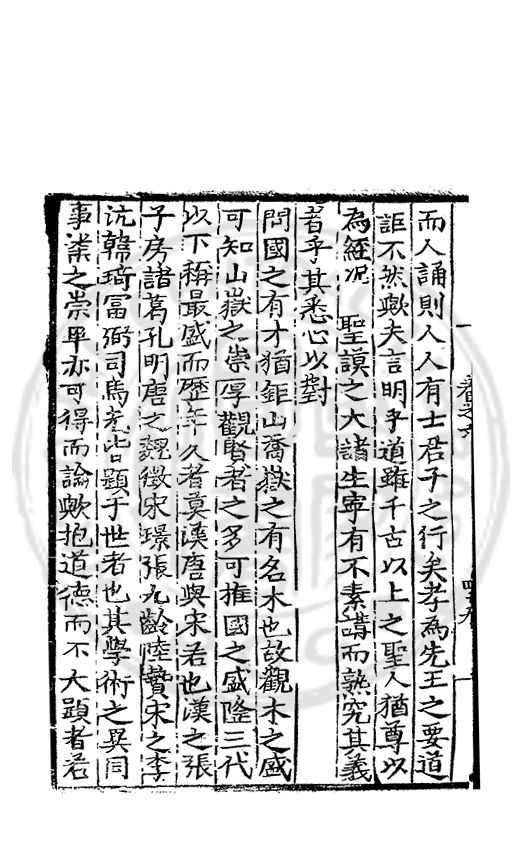 而人誦則人人有士君子之行矣孝為先王之要道
詎不然歟夫言明乎道雖千古以上之聖人猶尊以
為經况 聖謨之大諸生寧有不素講而熟究其義
者乎其悉心以對
問國之有才猶鉅山喬嶽之有名木也故觀木之盛
可知山嶽之崇厚觀賢者之多可推國之盛隆三代
以下稱最盛而歷年久者莫漢唐與宋若也漢之張
子房諸葛孔明唐之魏徵宋璟張九齡陸贄宋之李
沆韓琦富弼司馬光皆顯于世者也其學術之異同
事業之崇卑亦可得而論歟抱道德而不大顯者若
卷之六
四十九